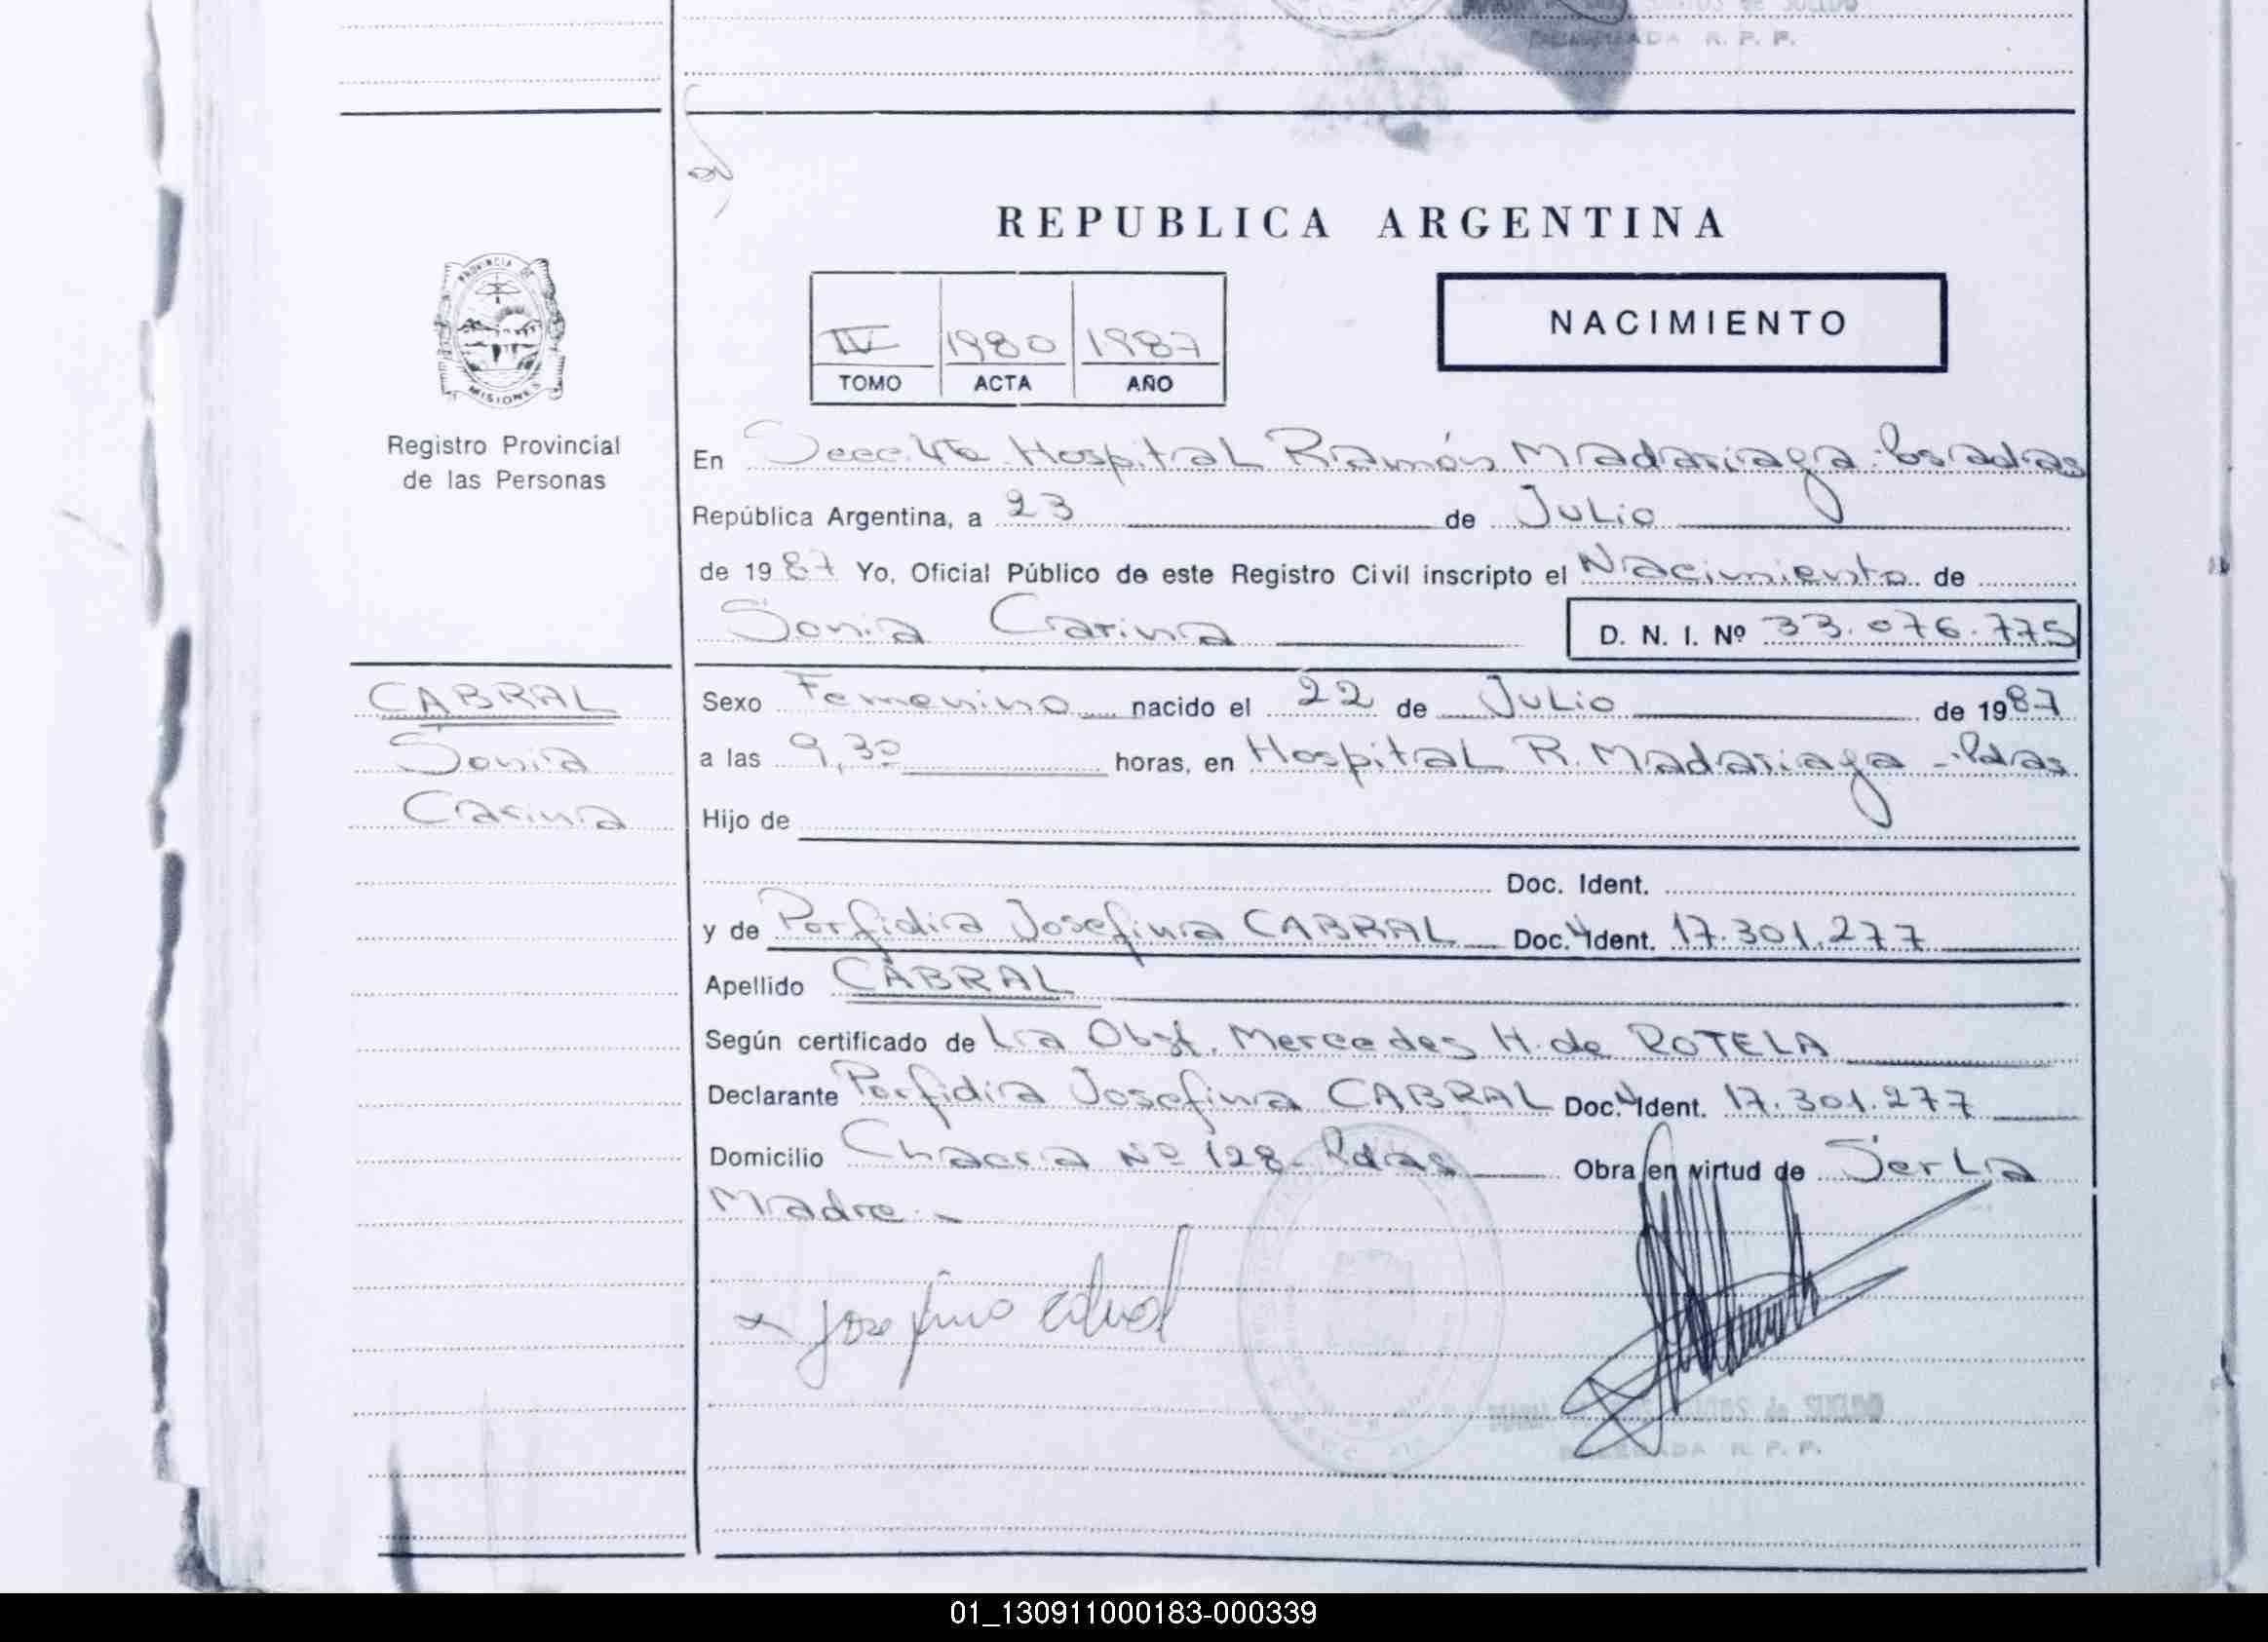 R. P. P.
REPUBLICA ARGENTINA
NACIMIENTO
IV 1980 1987
TOMO ACTA AÑO
PROVINCIA DE
MISIONES
Registro Provincial
de las Personas
En Secc. 4ta Hospital Ramón Madariaga. Posadas
República Argentina, a 23 de Julio
de 1987 Yo, Oficial Público de este Registro Civil inscripto el Nacimiento de
Sonia Carina D. N. I. Nº 33.076.775
CABRAL
Sonia
Carina
Sexo Femenino nacido el 22 de Julio de 1987
a las 9,30 horas, en Hospital R. Madariaga - Pdas
Hijo de
Doc. Ident.
y de Porfidia Josefina CABRAL Doc. Ident. 17.301.277
Apellido CABRAL
Según certificado de La Obst. Mercedes H. de ROTELA
Declarante Porfidia Josefina CABRAL Doc. Ident. 17.301.277
Domicilio Chacra Nº 128- Pdas Obra en virtud de Ser La
Madre.-
R. P. P.
01_130911000183-000339